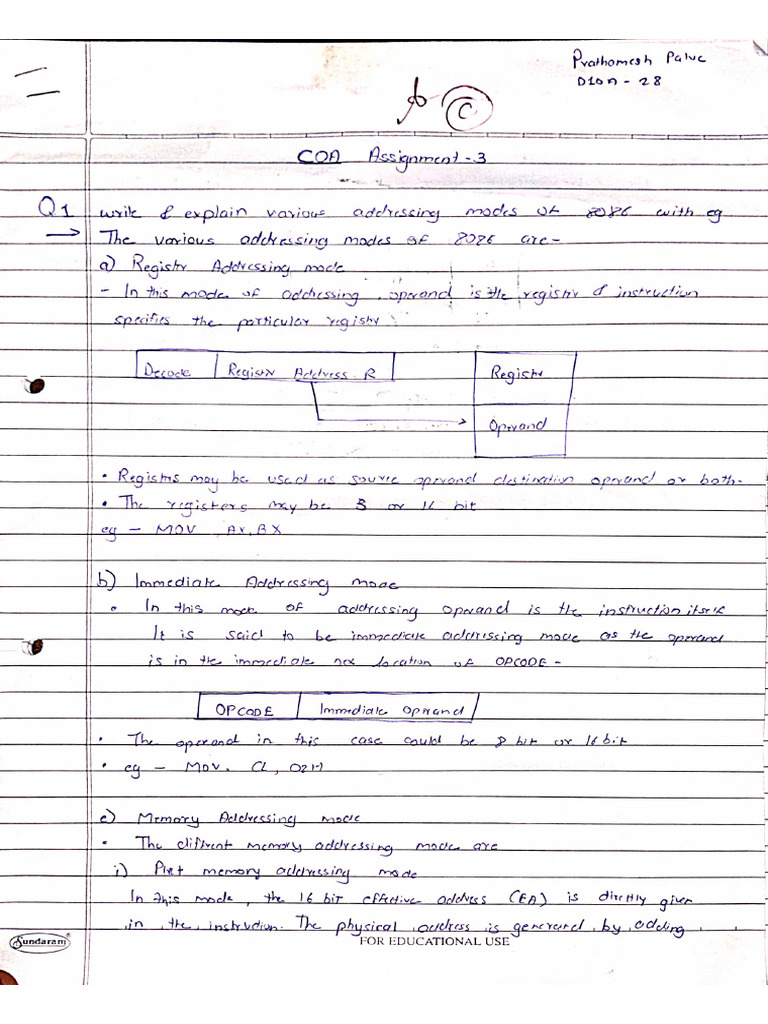 Prathamesh Palve
D10A - 28
C
COA Assignment - 3
Q1 write & explain various addressing modes of 8086 with eg
→ The various addressing modes of 8086 are -
a) Register Addressing mode
- In this mode of addressing, operand is the register & instruction
specifies the particular register
Decode | Register Address R
Register
Operand
• Registers may be used as source operand destination operand or both.
• The registers may be 8 or 16 bit
eg - MOV AX, BX
b) Immediate Addressing mode
• In this mode of addressing operand is the instruction itself
It is said to be immediate addressing mode as the operand
is in the immediate nex location of OPCODE -
OPCODE | Immediate Operand
• The operand in this case could be 8 bit or 16 bit
• eg - MOV. CL, 02H
c) Memory Addressing mode
• The diffrent memory addressing mode are
i) memory addressing mode
In this mode, the 16 bit effective address (EA) is directly given
in the instruction. The physical address is generated by adding
Sundaram®
FOR EDUCATIONAL USE